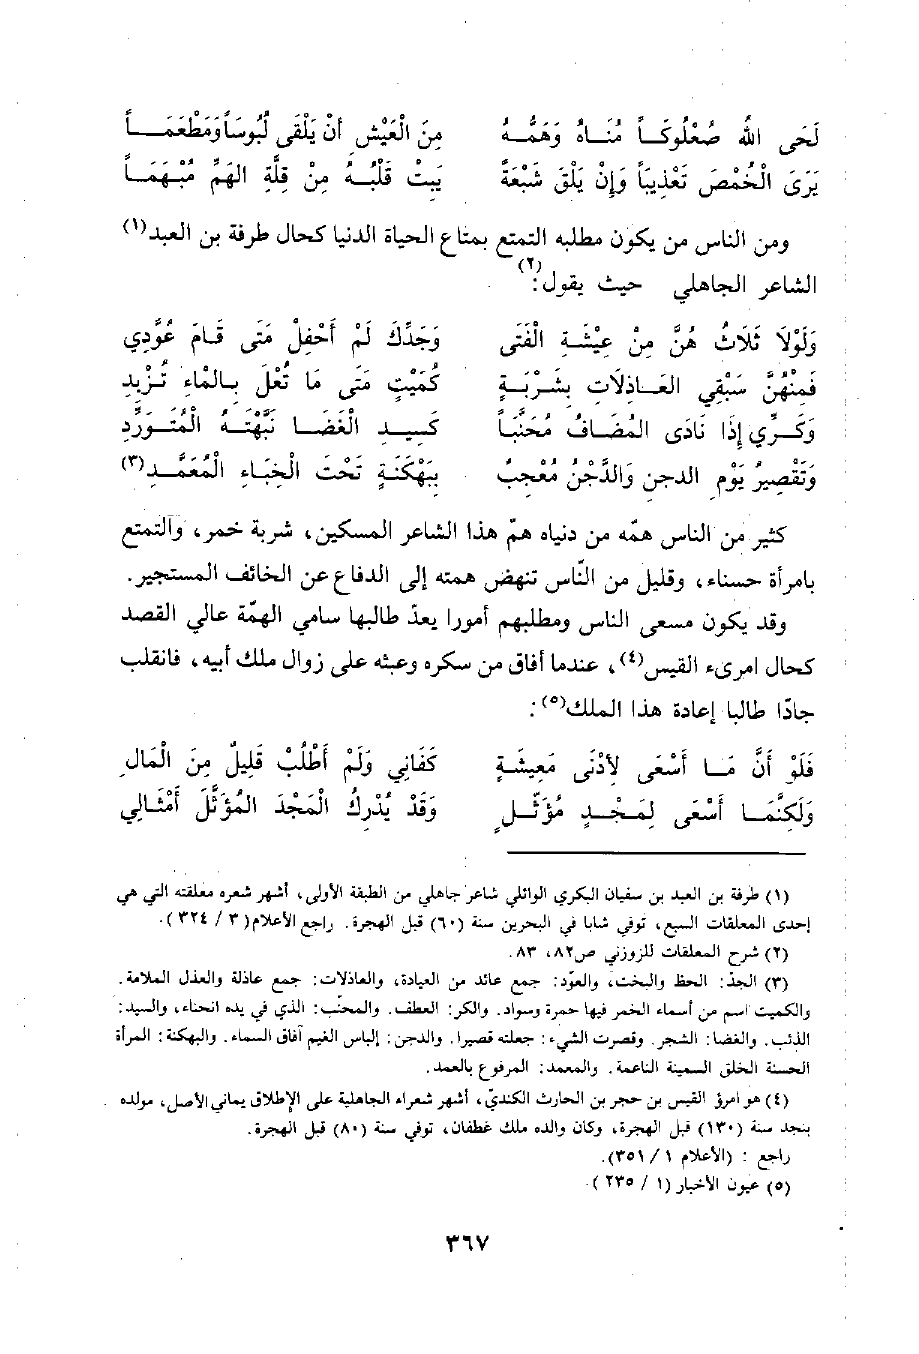 لَحَى اللهُ صُعْلُوكَــاً مُنَــاهُ وَهَمُّــهُ مِنَ الْعَيْشِ أنْ يَلْقَى لَبُوسَاً وَمَطْعَمَــاً
يَرَىَ الْخُمْصَ تَعْذِيبَاً وَإِنْ يَلْقَ شَبْعَةً يَبِتْ قَلْبُــهُ مِنْ قِلَّةِ الهَمِّ مُبْهَمَــاً
ومن الناس من يكون مطلبه التمتع بمتاع الحياة الدنيا كحال طرفة بن العبد(١)
الشاعر الجاهلي حيث يقول:(٢)
وَلَوْلَا ثَلَاثُ هُنَّ مِنْ عِيْشَــةِ الْفَتَى وَجَدِّكَ لَمْ أَحْفِلْ مَتَى قَـامَ عُوَّدِي
فَمِنْهُنَّ سَبْقِي العَــاذِلَاتِ بِشَــرْبَـةٍ كُمَيْتٍ مَتَى مَا تُعْلَ بـالْمَاءِ تُــزْبِدِ
وَكَــرِّي إِذَا نَادَى المُضَــافُ مُحَنَّبَـاً كَـسِيــدِ الْغَضَــا نَبَّهْتَــهُ الْمُتَــوَرِّدِ
وَتَقْصِيرُ يَوْمِ الدجن وَالدَّجْنُ مُعْجِبٌ بِبَهْكَنَـةٍ تَحْتَ الْخِبَـاءِ الْمُعَمَّــدِ(٣)
كثير من الناس همّه من دنياه همّ هذا الشاعر المسكين، شربة خمر، والتمتع
بامرأة حسناء، وقليل من النّاس تنهض همته إلى الدفاع عن الخائف المستجير.
وقد يكون مسعى الناس ومطلبهم أمورا يعدّ طالبها سامي الهمّة عالي القصد
كحال امرىء القيس(٤)، عندما أفاق من سكره وعبثه على زوال ملك أبيه، فانقلب
جادّا طالبا إعادة هذا الملك(٥):
فَلَوْ أَنَّ مَــا أَسْعَى لِأدْنَى مَعِيشَــةٍ كَفَانِي وَلَمْ أَطْلُبْ قَلِيلٌ مِنَ الْمَالِ
وَلَكِنَّمَــا أسْعَى لِمَـجْــدٍ مُؤَثَّــلٍ وَقَدْ يُدْرِكُ الْمَجْدَ المُؤَثَّلَ أَمْثَـالِي
(١) طرفة بن العبد بن سفيان البكري الوائلي شاعر جاهلي من الطبقة الأولى، أشهر شعره معلقته التي هي
إحدى المعلقات السبع، توفي شابا في البحرين سنة (٦٠) قبل الهجرة. راجع الأعلام(٣ / ٣٢٤).
(٢) شرح المعلقات للزوزني ص٨٢، ٨٣.
(٣) الجدّ: الحظ والبخت، والعوّد: جمع عائد من العيادة، والعاذلات: جمع عاذلة والعذل الملامة.
والكميت اسم من أسماء الخمر فيها حمرة وسواد. والكر: العطف. والمحنّب: الذي في يده انحناء، والسيد:
الذئب. والغضا: الشجر. وقصرت الشيء: جعلته قصيرا. والدجن: إلباس الغيم آفاق السماء. والبهكنة: المرأة
الحسنة الخلق السمينة الناعمة. والمعمد: المرفوع بالعمد.
(٤) هو امرؤ القيس بن حجر بن الحارث الكنديّ، أشهر شعراء الجاهلية على الإطلاق يماني الأصل، مولده
بنجد سنة (١٣٠) قبل الهجرة، وكان والده ملك غطفان، توفي سنة (٨٠) قبل الهجرة.
راجع : (الأعلام ١ / ٣٥١).
(٥) عيون الأخبار (١ / ٢٣٥)
٣٦٧